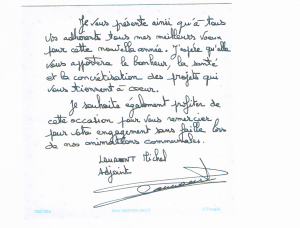 Je vous présente ainsi qu'à tous
vos adhérents tous mes meilleurs voeux
pour cette nouvelle année. J'espère qu'elle
vous apportera le bonheur, la santé
et la concrétisation des projets qui
vous tiennent à coeur.
Je souhaite également profiter de
cette occasion pour vous remercier
pour votre engagement sans faille lors
de nos animations communales.
LAURENT Michel
Adjoint